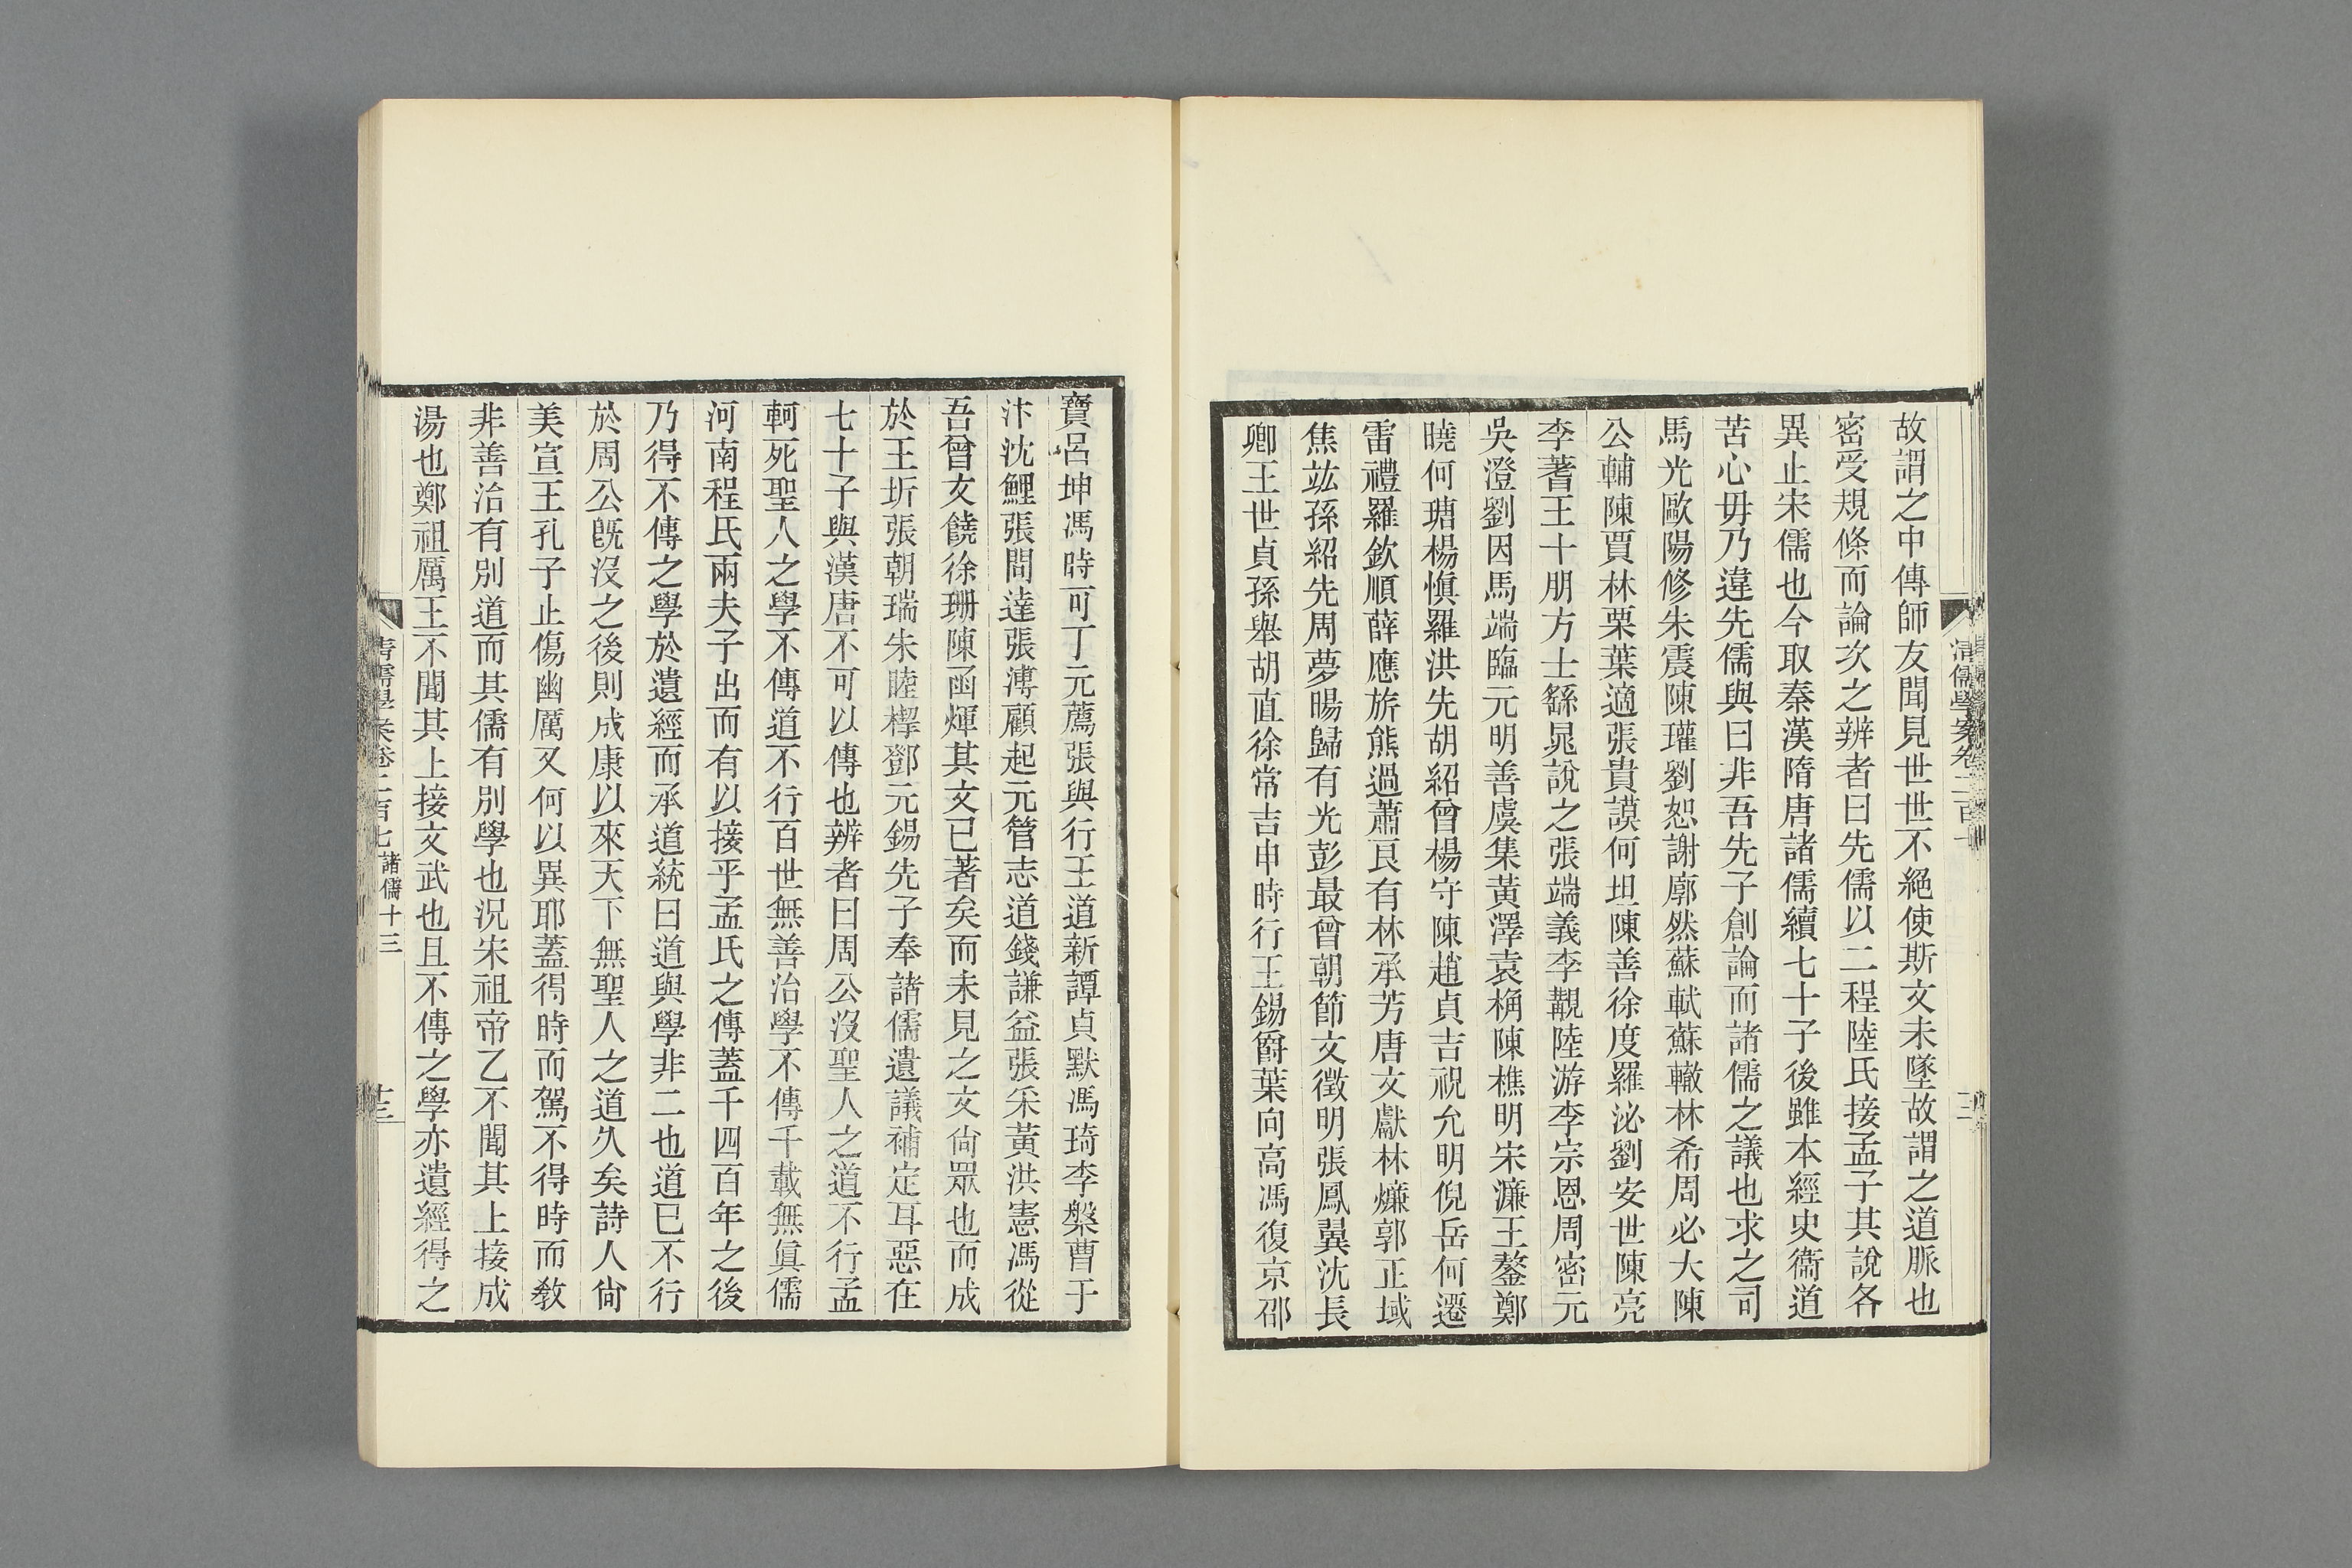 故謂之中傳師友聞見世世不絕使斯文未墜故謂之道脈也
密受規條而論次之辨者曰先儒以二程陸氏接孟子其說各
異止宋儒也今取秦漢隋唐諸儒續七十子後雖本經史衞道
苦心毋乃違先儒與曰非吾先子創論而諸儒之議也求之司
馬光歐陽修朱震陳瓘劉恕謝廓然蘇軾蘇轍林希周必大陳
公輔陳賈林栗葉適張貴謨何坦陳善徐度羅泌劉安世陳亮
李著王十朋方士繇晁說之張端義李觀陸游李宗恩周密元
吳澄劉因馬端臨元明善虞集黃澤袁桷陳樵明宋濂王鏊鄭
曉何瑭楊慎羅洪先胡紹曾楊守陳趙貞吉祝允明倪岳何遷
雷禮羅欽順薛應旂熊過蕭良有林承芳唐文獻林㷿郭正域
焦竑孫紹先周夢暘歸有光彭最曾朝節文徵明張鳳翼沈長
卿王世貞孫舉胡直徐常吉申時行王錫爵葉向高馮復京邵
寶呂坤馮時可丁元薦張與行王道新譚貞默馮琦李槃曹于
汴沈鯉張問達張溥顧起元管志道錢謙益張采黃洪憲馮從
吾曾友饒徐珊陳函煇其文已著矣而未見之文尙眾也而成
於王圻張朝瑞朱睦㮮鄧元錫先子奉諸儒遺議補定耳惡在
七十子與漢唐不可以傳也辨者曰周公沒聖人之道不行孟
軻死聖人之學不傳道不行百世無善治學不傳千載無眞儒
河南程氏兩夫子出而有以接乎孟氏之傳蓋千四百年之後
乃得不傳之學於遺經而承道統曰道與學非二也道已不行
於周公旣沒之後則成康以來天下無聖人之道久矣詩人尙
美宣王孔子止傷幽厲又何以異耶蓋得時而駕不得時而敎
非善治有別道而其儒有別學也況宋祖帝乙不聞其上接成
湯也鄭祖厲王不聞其上接文武也且不傳之學亦遺經得之
清儒學案卷二百七 諸儒十三